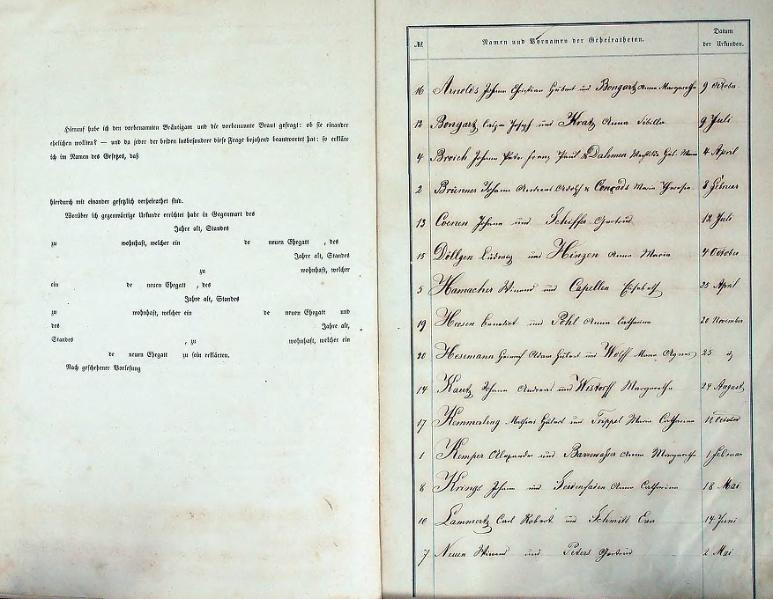 Hierauf habe ich den vorbenannten Bräutigam und die vorbenannte Braut gefragt: ob sie einander
ehelichen wollen? — und da jeder der beiden insbesondere diese Frage bejahend beantwortet hat: so erkläre
ich im Namen des Gesetzes, daß
hierdurch mit einander gesetzlich verheirathet sind.
Worüber ich gegenwärtige Urkunde errichtet habe in Gegenwart des
Jahre alt, Standes
zu wohnhaft, welcher ein de neuen Ehegatt , des
Jahre alt, Standes
zu wohnhaft, welcher
ein de neuen Ehegatt , des
Jahre alt, Standes
zu wohnhaft, welcher ein de neuen Ehegatt und
des Jahre alt,
Standes , zu wohnhaft, welcher ein
de neuen Ehegatt zu sein erklärten.
Nach geschehener Vorlesung
№ Namen und Vornamen der Geheiratheten. Datum
der Urkunden.
16 Arnolds Johann Christian Hubert und Bongartz Anna Margaretha 9 October
12 Bongartz Joseph und Kratz Anna Sibilla 9 Juli
4 Broich Johann Peter Franz Paul & Dahmen Mathilde Hub. Maria 4 April
2 Brünner Johann Andreas Adolf & Conrads Maria Theresia 8 Februar
13 Coenen Johann und Schiffer Gertrud 12 Juli
15 Döllgen Ludwig und Hinzen Anna Maria 4 October
5 Hamacher Winand und Capellen Elisabeth 25 April
19 Benedict und Pohl Anna Catharina 20 November
20 Hesemann Heinrich Adam Hubert und Wolff Maria Agnes 25
14 Kautz Johann Andreas und Wistorff Margaretha 24 August
17 Kemmerling Mathias Hubert und Trippel Maria Catharina 12 October
1 Kemper Alexander und Anna Margaretha 1 Februar
8 Krings Johann und Seidenfaden Anna Catharina 18 Mai
10 Lammertz Carl Robert und Schmitt Eva 14 Juni
7 Neuen Winand und Peters Gertrud 2 Mai